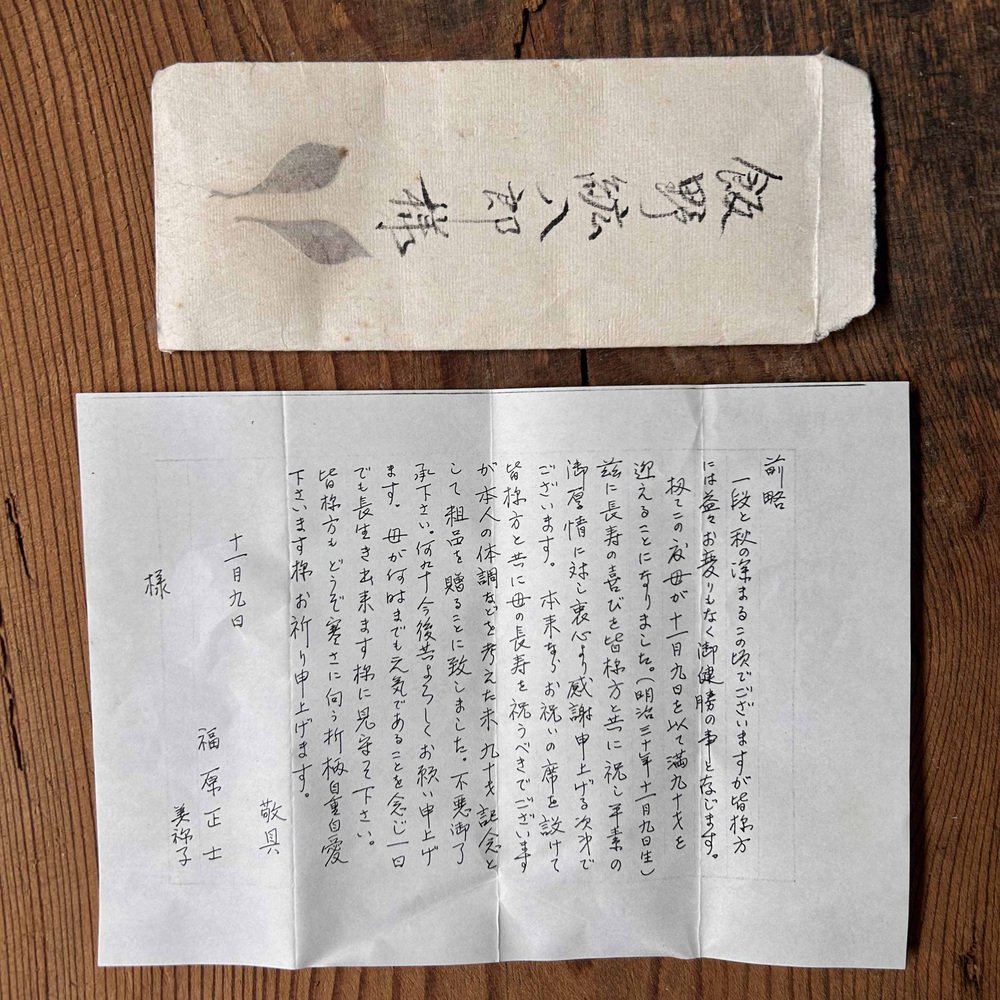 飯野紘八郎様
前略
一段と秋の深まるこの頃でございますが皆様方
には益々お変りもなく御健勝の事と存じます。
扨てこの度母が十一月九日を以て満九十才を
迎えることになりました。(明治三十年十一月九日生)
茲に長寿の喜びを皆様方と共に祝し平素の
御厚情に対し衷心より感謝申上げる次第で
ございます。本来ならお祝いの席を設けて
皆様方と共に母の長寿を祝うべきでございます
が本人の体調などを考えた末九十才記念と
して粗品を贈ることに致しました。不悪御了
承下さい。何卒今後共よろしくお願い申上げ
ます。母が何時までも元気であることを念じ一日
でも長生き出来ます様に見守って下さい。
皆様方もどうぞ寒さに向う折柄自重自愛
下さいます様お祈り申上げます。
敬具
十一月九日
福原正士
美祢子
様